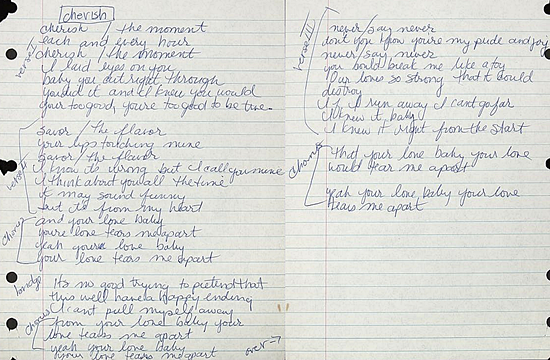 cherish
verse I
cherish / the moment
each and every hour
cherish / the moment
I laid eyes on you
baby you cut right through
you did it and I knew you would
your too good, you're too good to be true.
verse II
savor / the flavor
your lips touching mine
savor / the flavor
I know its wrong but I call you mine
I think about you all the time
it may sound funny
but its from my heart
chorus
and your love baby
you're love tears me apart
yeah your love baby
your love tears me apart
bridge
It's no good trying to pretend that
this will have a happy ending
I can't pull myself away
chorus
from your love baby your
love tears me apart
yeah your love baby
your love tears me apart
over →
verse III
never / say never
dont you know you're my pride and joy
never / say never
you could break me like a toy
Our loves so strong that it could
destroy
If I run away I cant go far
I knew it, baby
I knew it right from the start
chorus
that your love baby your love
would tear me apart
yeah your love baby your love
tears me apart